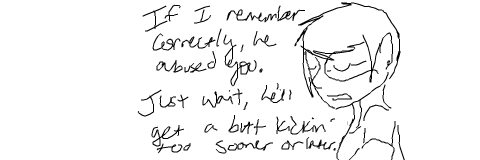 If I remember
correctly, he
abused you.
Just wait, he'll
get a butt kickin'
too sooner or later.